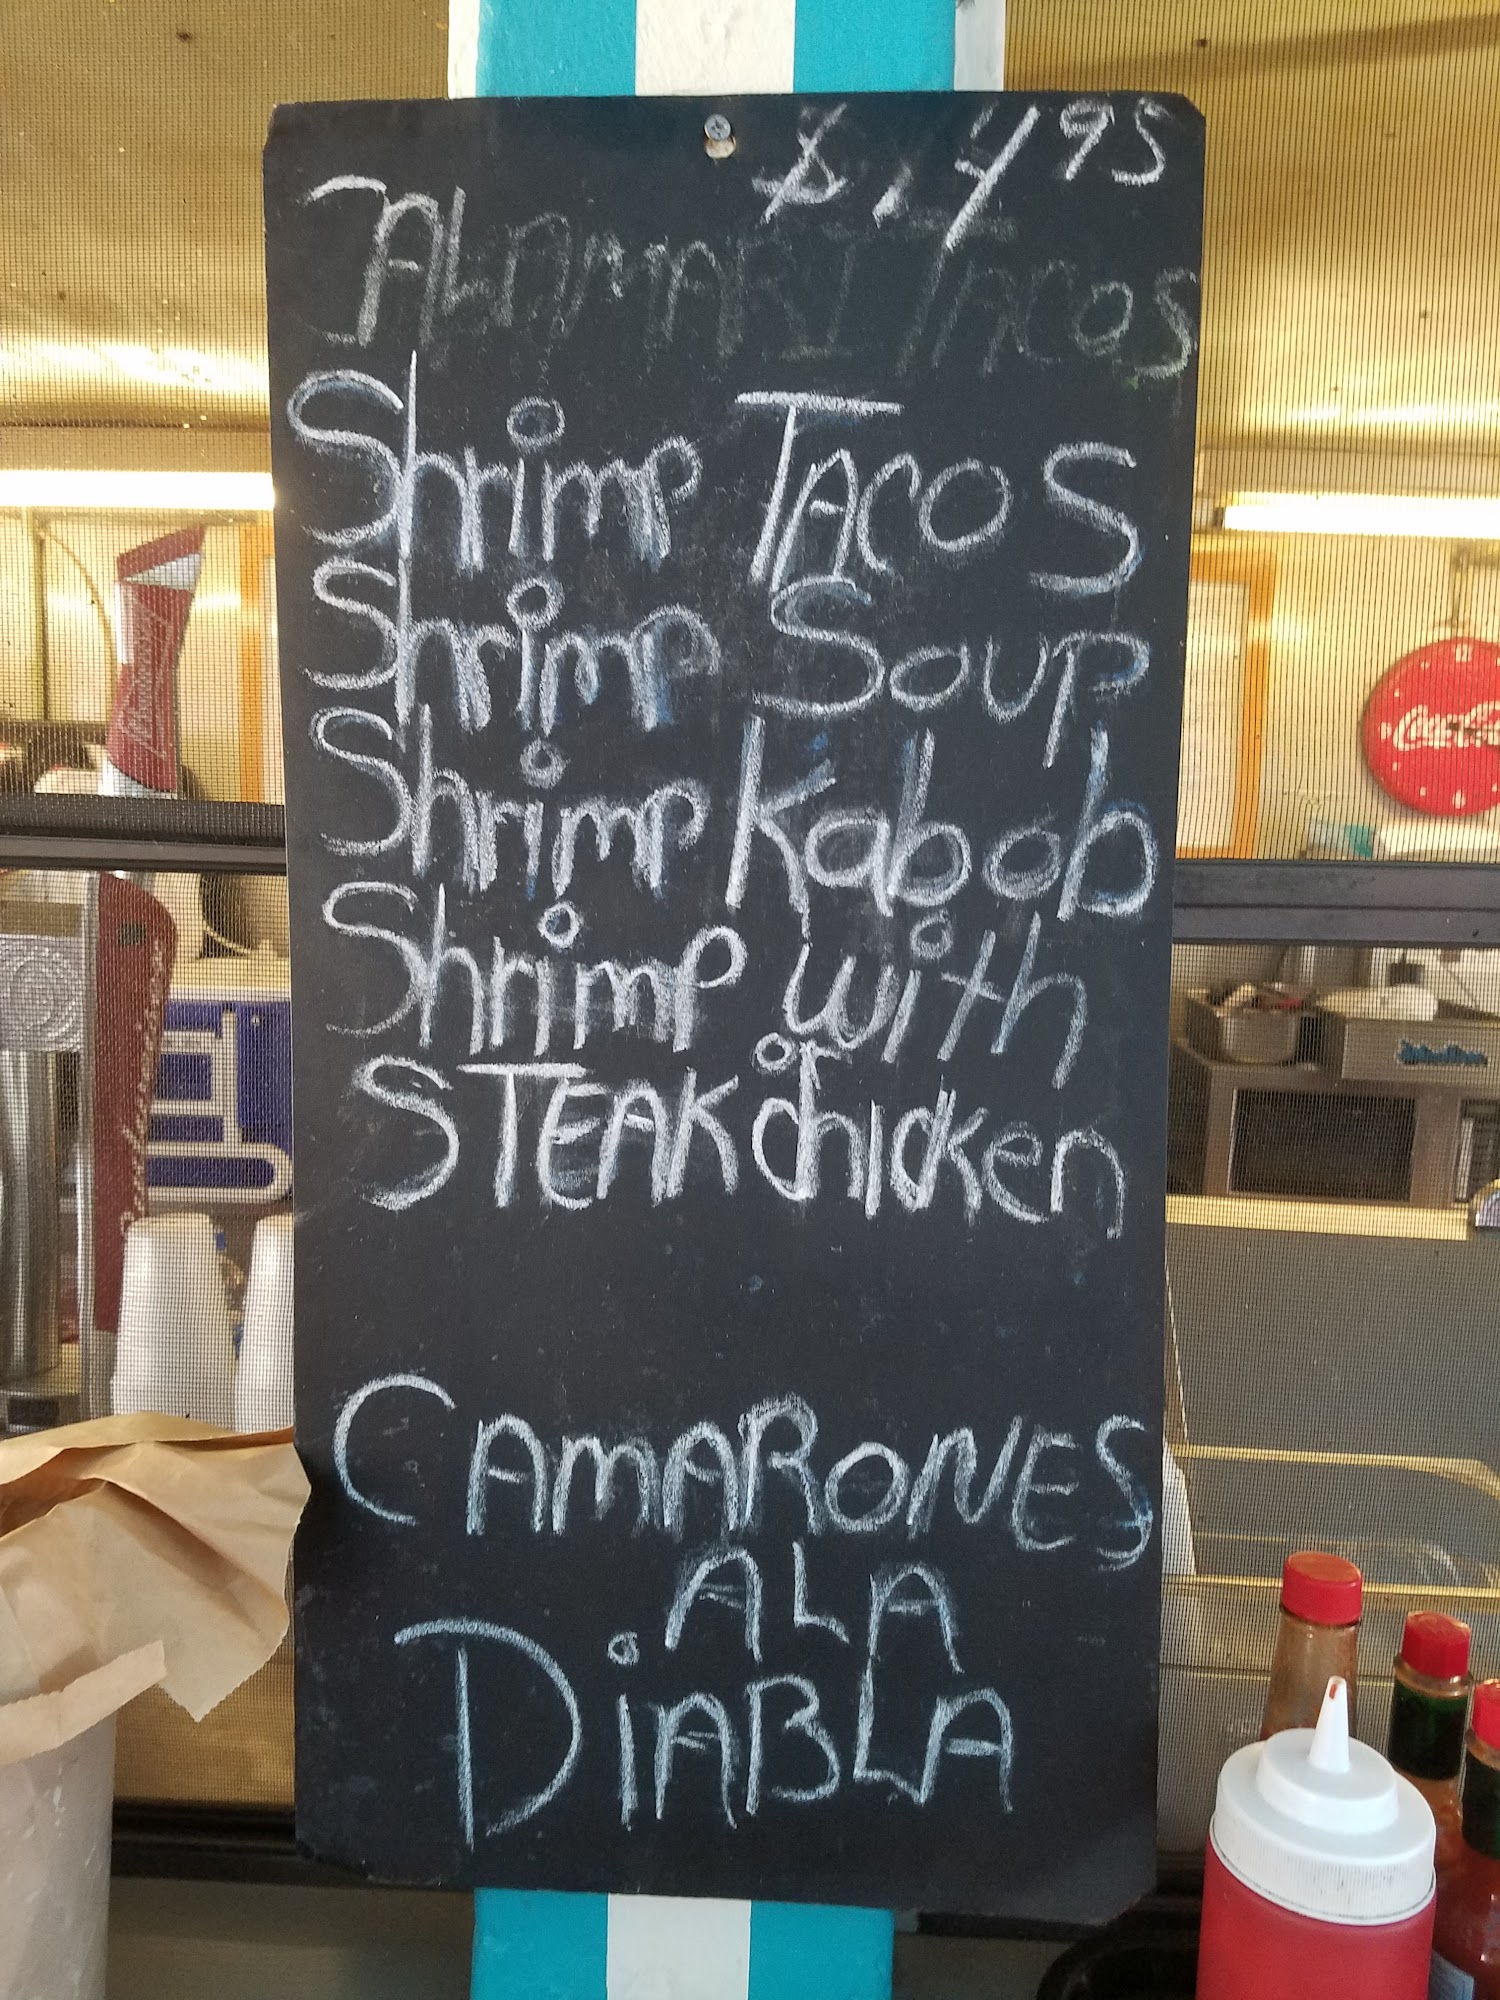 $.495
CALAMARI TACOS
Shrimp TACOS
Shrimp Soup
Shrimp Kabob
Shrimp with
STEAK or chicken
CAMARONES
ALA
DiABLA
Budweiser
Coca-Cola